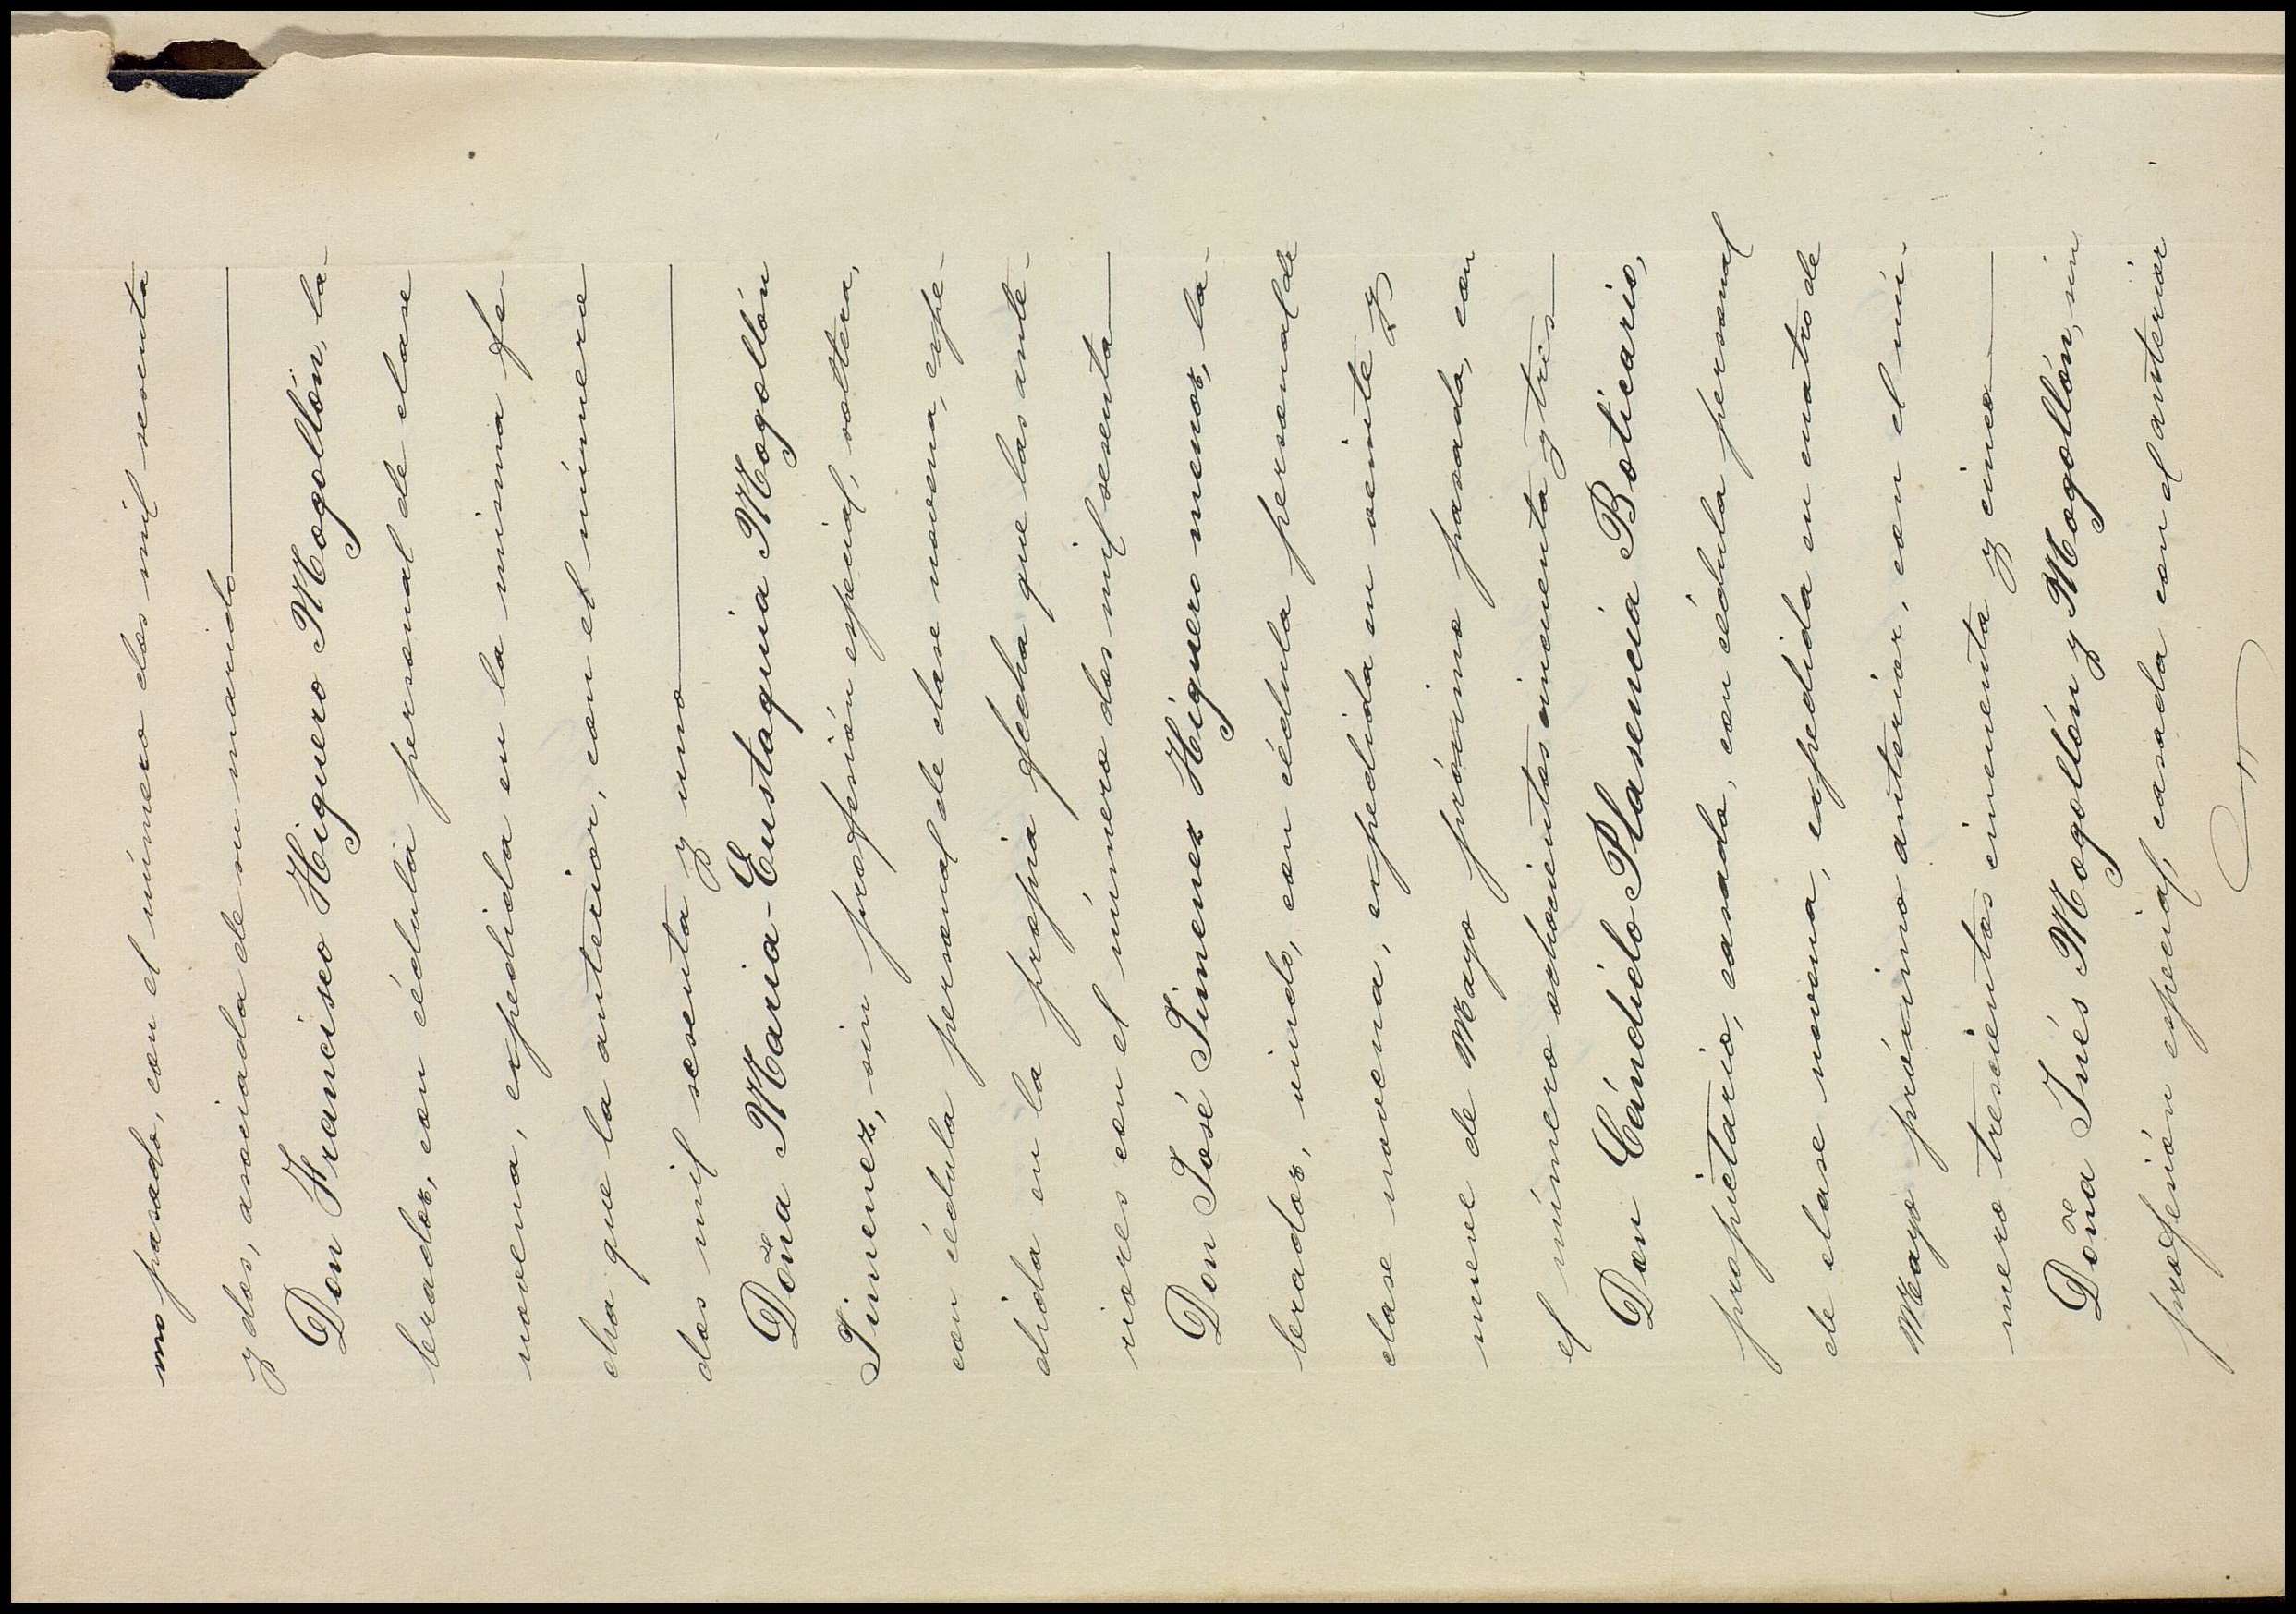 mo pasado, con el número dos mil sesenta
y dos, asociada de su marido
Don Francisco Higuero Mogollón, la-
brador, con cédula personal de clase
novena, expedida en la misma fe
cha que la anterior, con el número
dos mil sesenta y uno
Doña Maria-Eustaquia Mogollón
Jimenez, sin profesión especial, soltera,
con cédula personal de clase novena, expe-
dida en la propia fecha que las ante-
riores con el número dos mil sesenta
Don José Jimenez Higuero menor, la-
brador, viudo, con cédula personal de
clase novena, expedida en veinte y
nueve de Mayo próximo pasado, con
el número ochocientos cincuenta y tres
Don Cándido Plasencia Boticario,
propietario, casado, con cédula personal
de clase novena, expedida en cuatro de
Mayo próximo anterior, con el nú-
mero trescientos cincuenta y cinco
Doña Inés Mogollón y Mogollón, sin
profesión especial, casada con el anterior